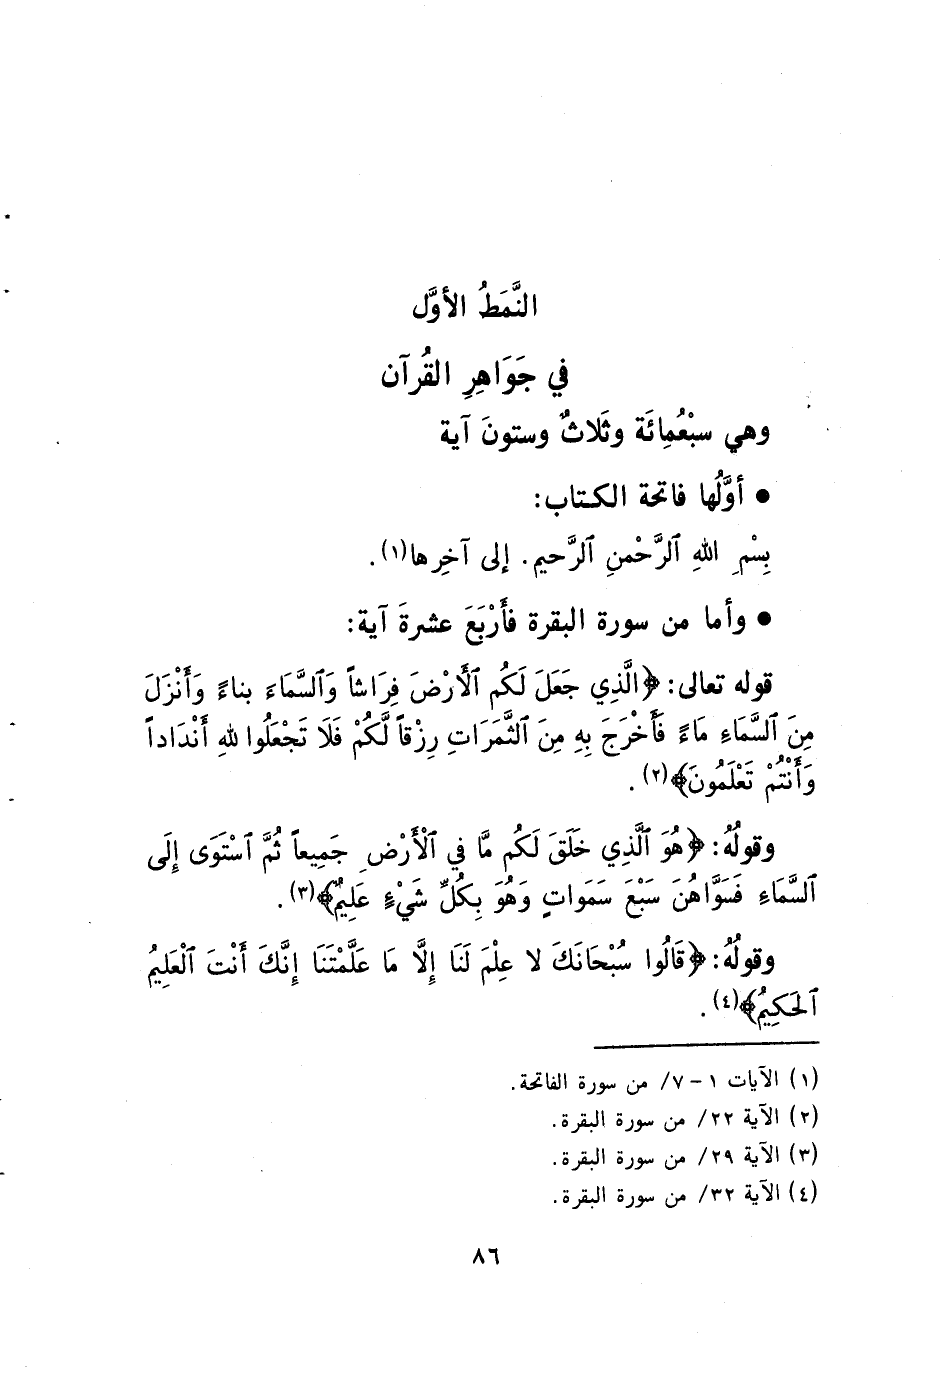 النَّمَطُ الأوَّل
في جَوَاهِرِ القُرآن
وهي سبْعُمِائَة وثَلاثٌ وستونَ آية
● أوَّلُها فاتحة الكتاب:
بِسْمِ اللهِ ٱلرَّحْمنِ ٱلرَّحيم. إلى آخِرِها(١).
● وأما من سورة البقرة فأَرْبَعَ عشرةَ آية:
قوله تعالى: ﴿الَّذِي جَعَلَ لَكُم ٱلأَرْضَ فِرَاشاً وَٱلسَّمَاءَ بناءً وَأَنْزَلَ
مِنَ ٱلسَّمَاءِ مَاءً فَأَخْرَجَ بِهِ مِنَ ٱلثَّمَرَاتِ رِزْقاً لَّكُمْ فَلَا تَجْعَلُوا للهِ أَنْدَاداً
وَأَنْتُمْ تَعْلَمُونَ﴾(٢).
وقولُهُ: ﴿هُوَ ٱلَّذِي خَلَقَ لَكُم مَّا في ٱلْأَرْضِ جَمِيعاً ثُمَّ ٱسْتَوَى إِلَى
ٱلسَّمَاءِ فَسَوَّاهُنَ سَبْعَ سَمَواتٍ وَهُوَ بِكُلِّ شَيْءٍ عَلِيمٌ﴾(٣).
وقولُهُ: ﴿قَالُوا سُبْحَانَكَ لا عِلْمَ لَنَا إِلَّا مَا عَلَّمْتَنَا إِنَّكَ أَنْتَ ٱلْعَلِيمُ
ٱلحَكِيمُ﴾(٤).
(١) الآيات ١ - ٧/ من سورة الفاتحة.
(٢) الآية ٢٢/ من سورة البقرة.
(٣) الآية ٢٩/ من سورة البقرة.
(٤) الآية ٣٢/ من سورة البقرة.
٨٦